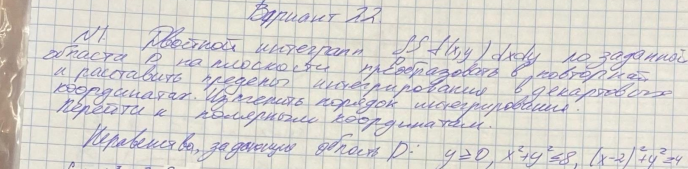 Вариант 22
№1. Двойной интеграл ∫∫ f(x,y) dxdy по заданной
области D на плоскости преобразовать в повторный
и расставить пределы интегрирования в декартовых
координатах. Изменить порядок интегрирования.
Перейти к полярным координатам.
Неравенства, задающие область D: y≥0, x²+y²≤8, (x-2)²+y²≤4